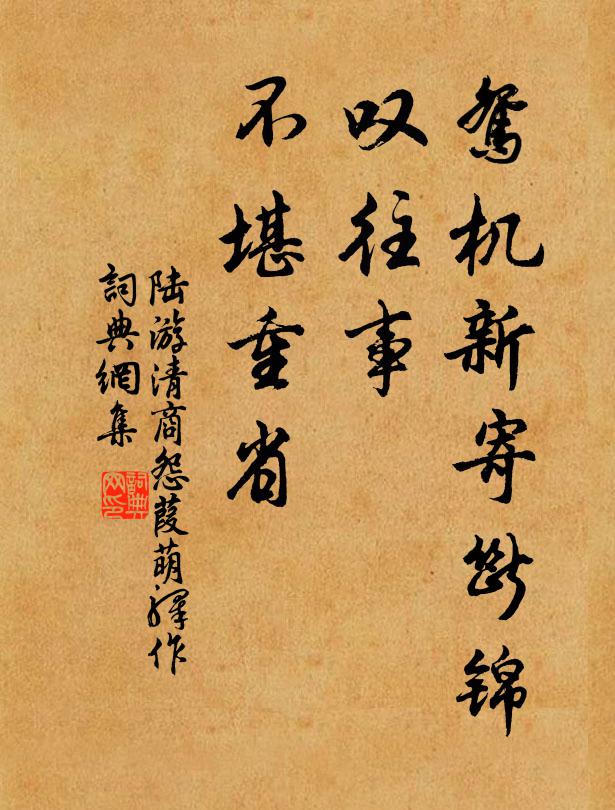 鸳机新寄断锦
叹往事
不堪重省
陆游清商怨葭萌驿作
詞典網集
詞典網印